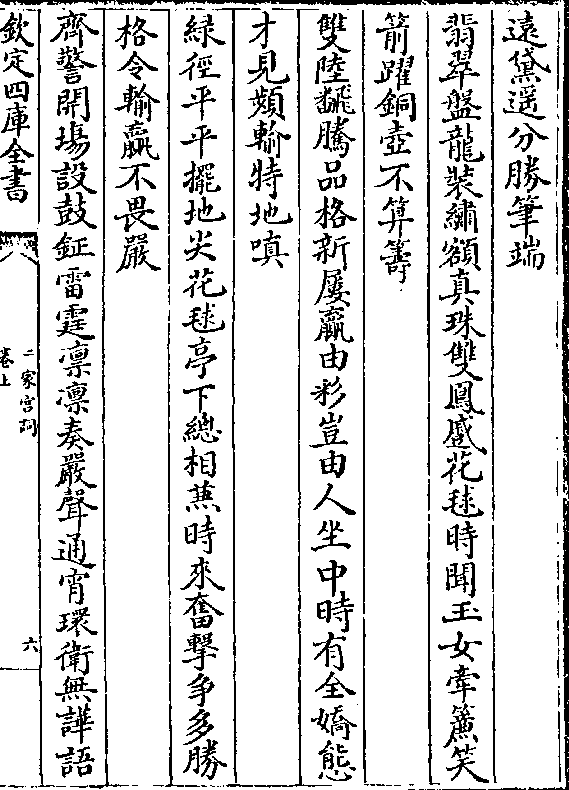 遠黛遥分勝筆端
翡翠盤龍裝繡額真珠雙鳳蹙花毬時聞玉女牽簾笑
箭躍銅壺不算籌
雙陸翻騰品格新屢贏由彩豈由人坐中時有全嬌態
才見頻輸特地嗔
緑徑平平擺地尖花毬亭下總相兼時來奮擊爭多勝
格令輸贏不畏嚴
齊警開場設鼓鉦雷霆凛凛奏嚴聲通宵環衛無譁語
欽定四庫全書
二家宫詞
卷上
六